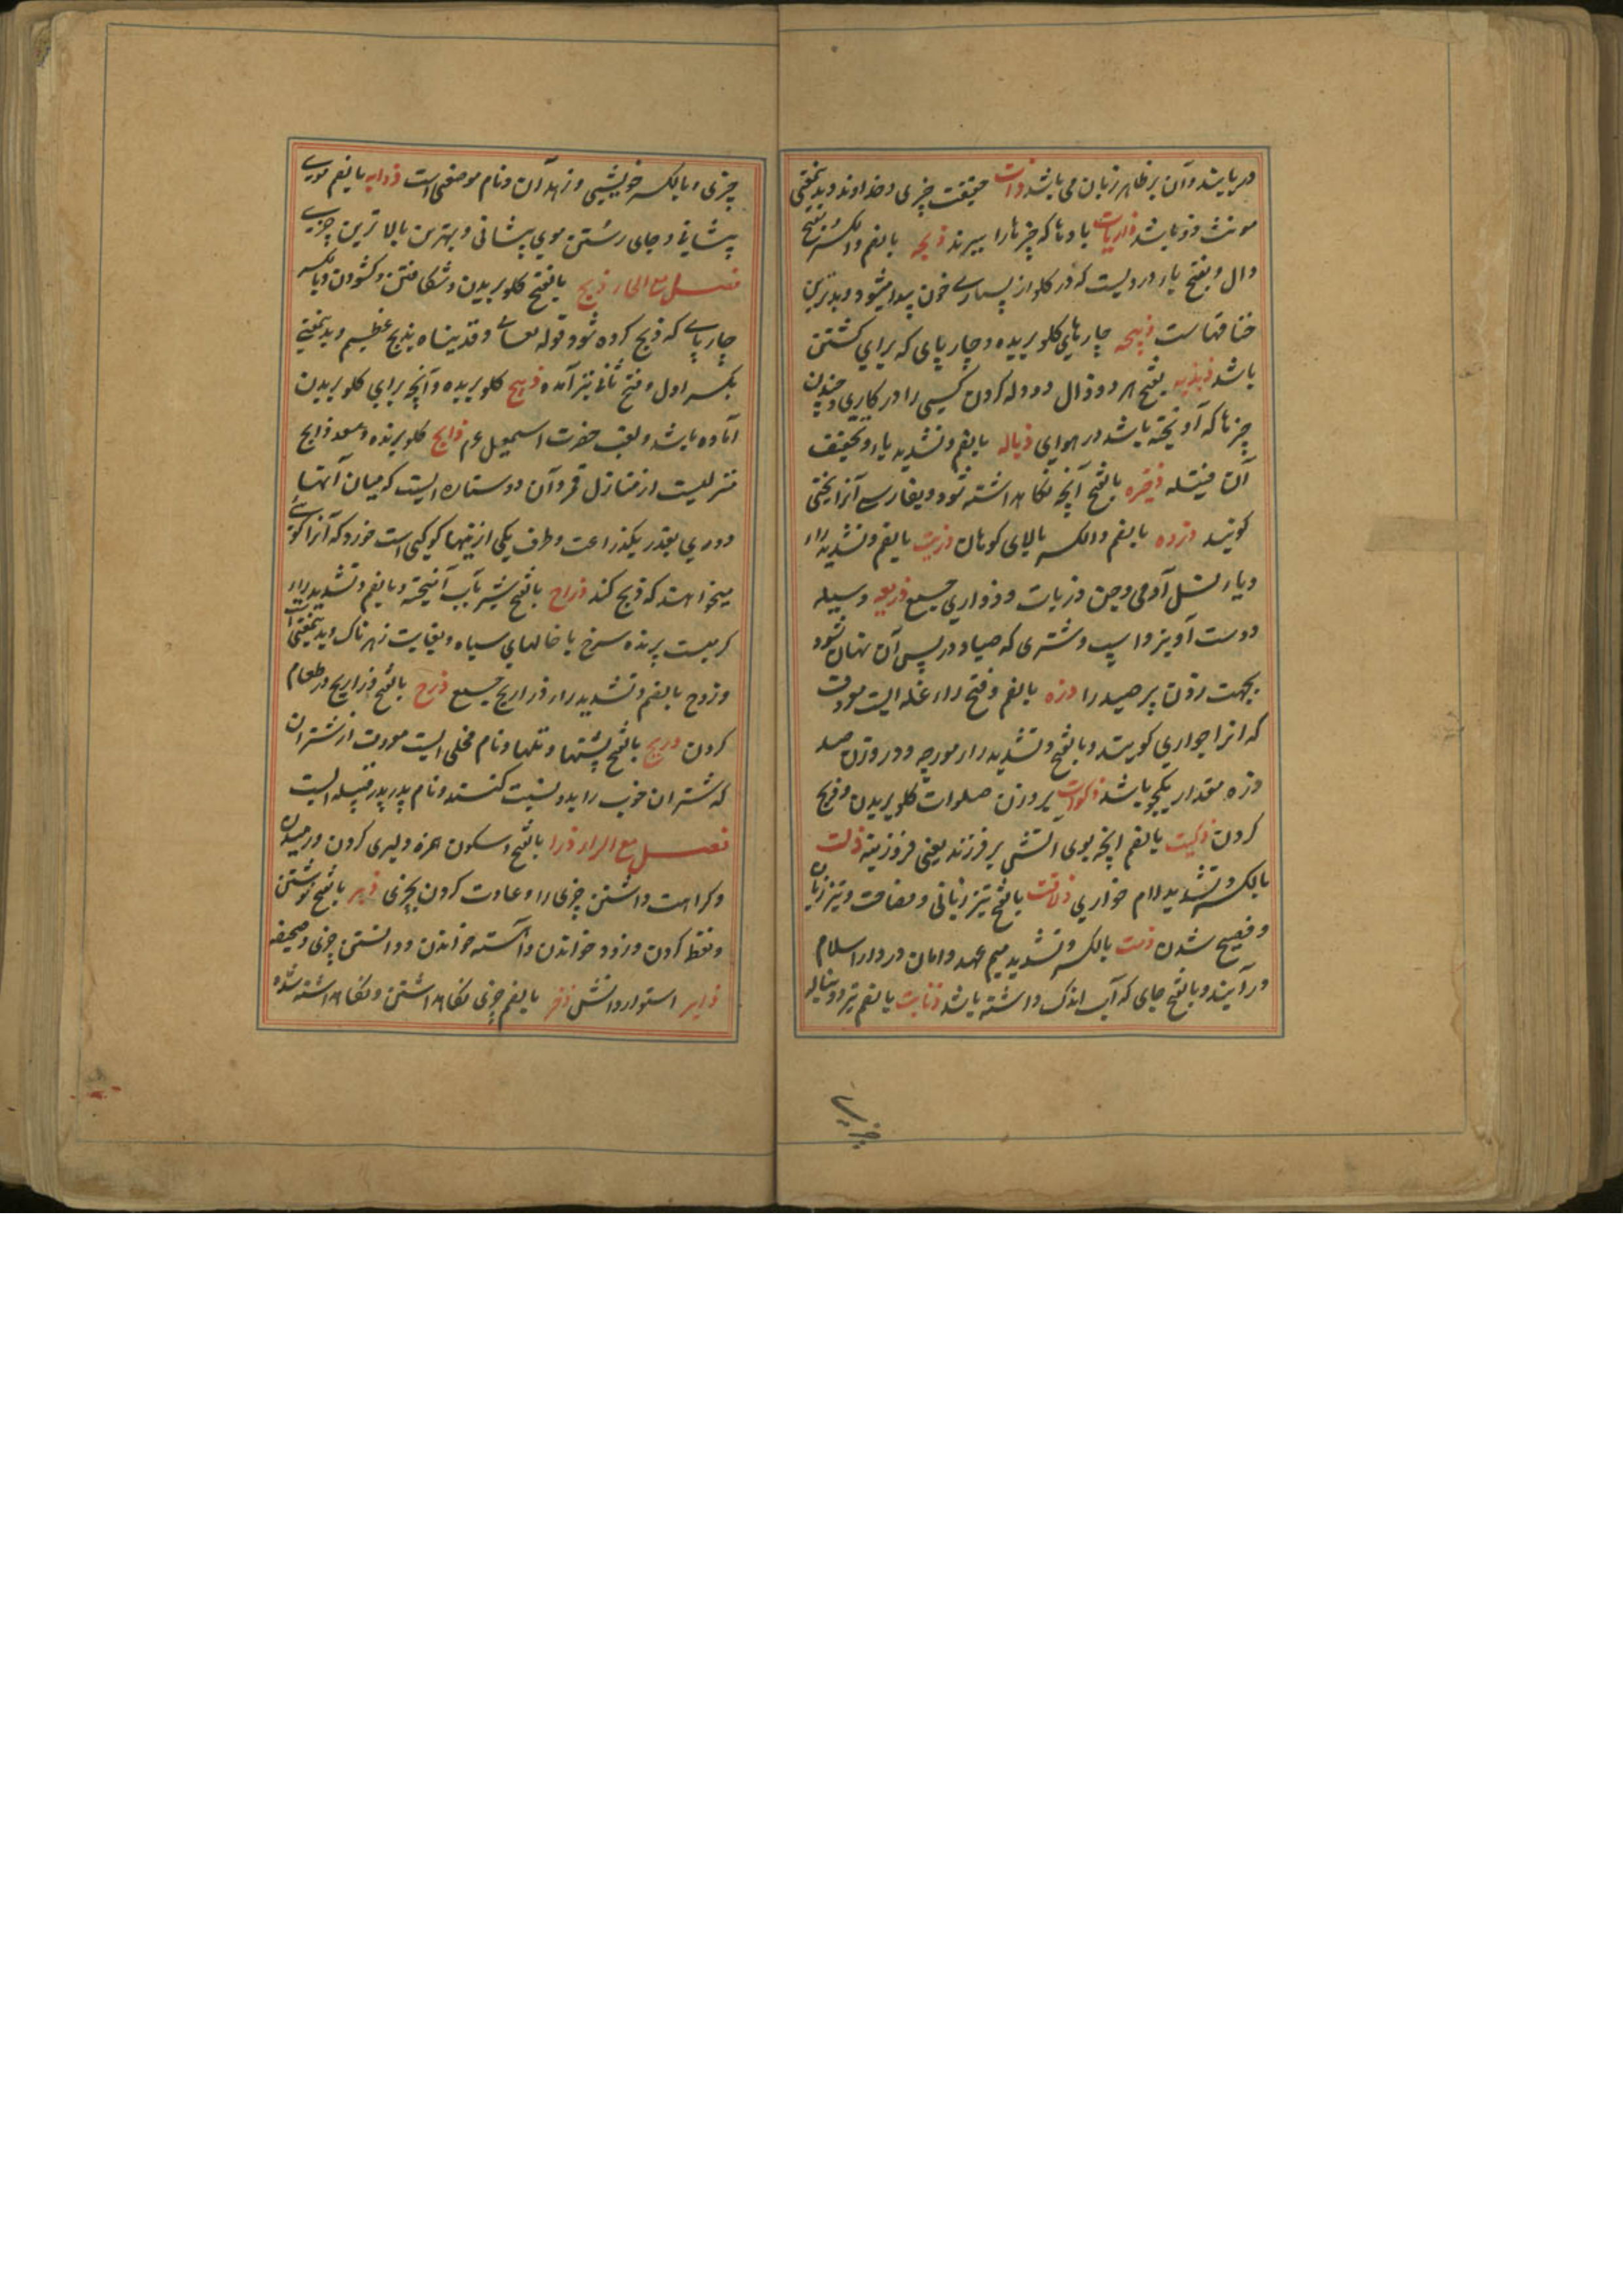 در یابند و آن بر ظاهر زبان می باشد ذات حقیقت چیزی و خداوند و بدینمعنی
مونث ذو باشد ذاریات بادها که چیزها را ببرند ذبحه بالضم و الکسر و بفتح
دال و بفتح یا دردیست که در کلو از بسیاری خون پیدا میشود و بدترین
خناقهاست ذبیحه چارپای کلو بریده و چارپای که برای کشتن
باشد ذبذبه بفتح هر دو ذال دو دله کردن کسی را در کاری و جنبیدن
چیزها که آویخته باشد در هوای ذباله بالضم و تشدید با و تخفیف
آن فتیله ذخیره بالفتح آنچه نگاهداشته شود و بفارسی آنرا یخنی
گویند ذروه بالضم و الکسر بالای کوهان ذریت بالضم و تشدید را
و یا نسل آدمی و جن و ذریات و ذراری جمع ذریعه وسیله
و دست آویز و اسپ و شتری که صیاد در پس آن نهان شود
بجهت زدن بر صید را ذره بالضم و فتح را غله ایست معروف
که آنرا جواری گویند و بالفتح و تشدید را مورچه و در وزن صد
ذره مقدار یکجو باشد ذکوات بر وزن صلوات کلو بریدن و ذبح
کردن ذکیت بالضم آنچه بوی آتش بر فروزند یعنی فروزینه ذلت
بالکسر و تشدید لام خواری ذلاقت بالفتح تیز زبانی و فصاحت و تیز زبان
و فصیح شدن ذمت بالکسر و تشدید میم عهد و امان و در دار اسلام
در آیند و بالفتح جای که آب اندک داشته باشد ذنابت بالضم تیر و دنباله
چیزی
چیزی و بالکسر خویشی و زهدان و نام موضعی است ذوابه بالضم موی
پیشانی و جای رستن موی پیشانی و بهترین بالا ترین چیزی
فصل مع الحاء ذبح بالفتح کلو بریدن و شکافتن و کشودن و بالکسر
چارپای که ذبح کرده شود قوله تعالی و فدیناه بذبح عظیم و بدینمعنی
بکسر اول و فتح ثانی نیز آمده ذبیح کلو بریده و آنچه برای کلو بریدن
آماده باشد و لقب حضرت اسمعیل عم ذابح کلو برنده و سعد ذابح
منزلیست از منازل قمر و آن دو ستاره ایست که میان آنها
دوری بقدر یکذراعت و طرف یکی از اینها کوکبی است خورد که آنرا گویی
میخواهند که ذبح کند ذراح بالفتح شیر بآب آمیخته و بالضم و تشدید را
کرمیست پرنده سرخ با خالهای سیاه و بغایت زهرناک و بدینمعنی است
و ذروح بالضم و تشدید را و ذراریح جمع ذرح بالفتح ذراریح در طعام
کردن ذریح بالفتح پشتها و تلها و نام فحلی ایست معروف از شتران
که شتران خوب را بدو نسبت کنند و نام پدر پدر قبیله ایست
فصل مع الراء ذرا بالفتح و سکون همزه دلیری کردن و رمیدن
و کراهت داشتن چیزی را و عادت کردن بچیزی ذبر بالفتح نوشتن
و نقط کردن و زود خواندن و آهسته خواندن و دانستن چیزی و صحیفه
ذابر استوار دانش ذخر بالضم چیزی نگاهداشتن و نگاهداشته شده